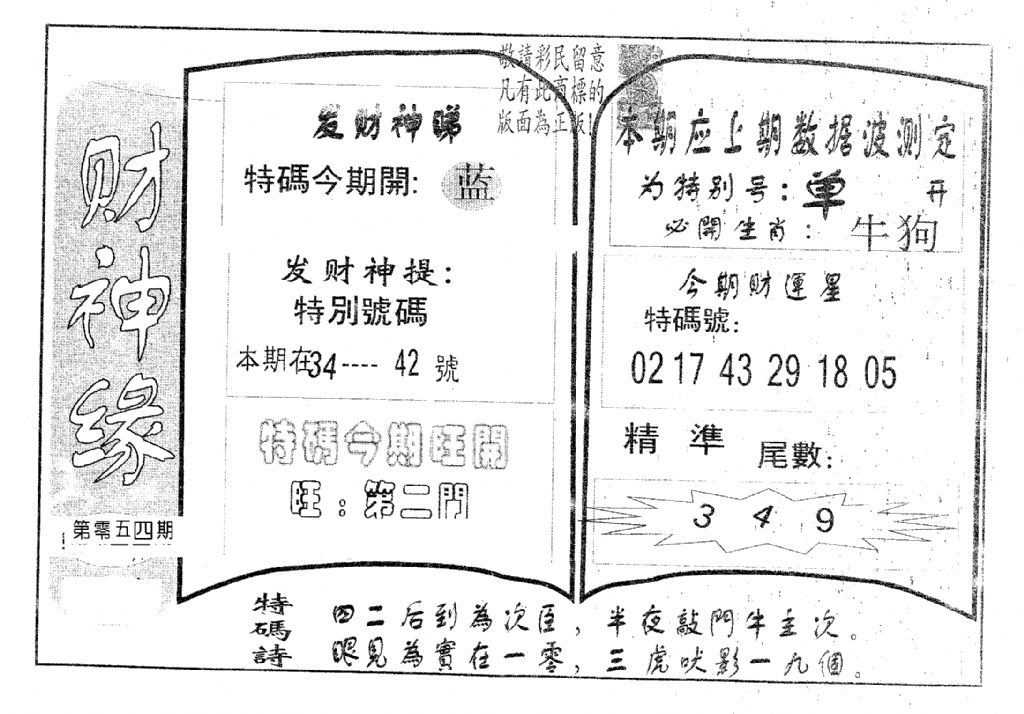 财神缘
第零五四期
敬請彩民留意
凡有此商標的
版面為正版!
发财神睇
特碼今期開: 蓝
发财神提:
特別號碼
本期在34---- 42 號
特碼今期旺開
旺:第二門
本期应上期数据波测定
为特别号:单 开
必開生肖: 牛狗
今期财運星
特碼號:
02 17 43 29 18 05
精 準 尾數:
3 4 9
特碼詩
四二后到為次臣,半夜敲門牛主次。
眼見為實在一零,三虎吠影一九個。